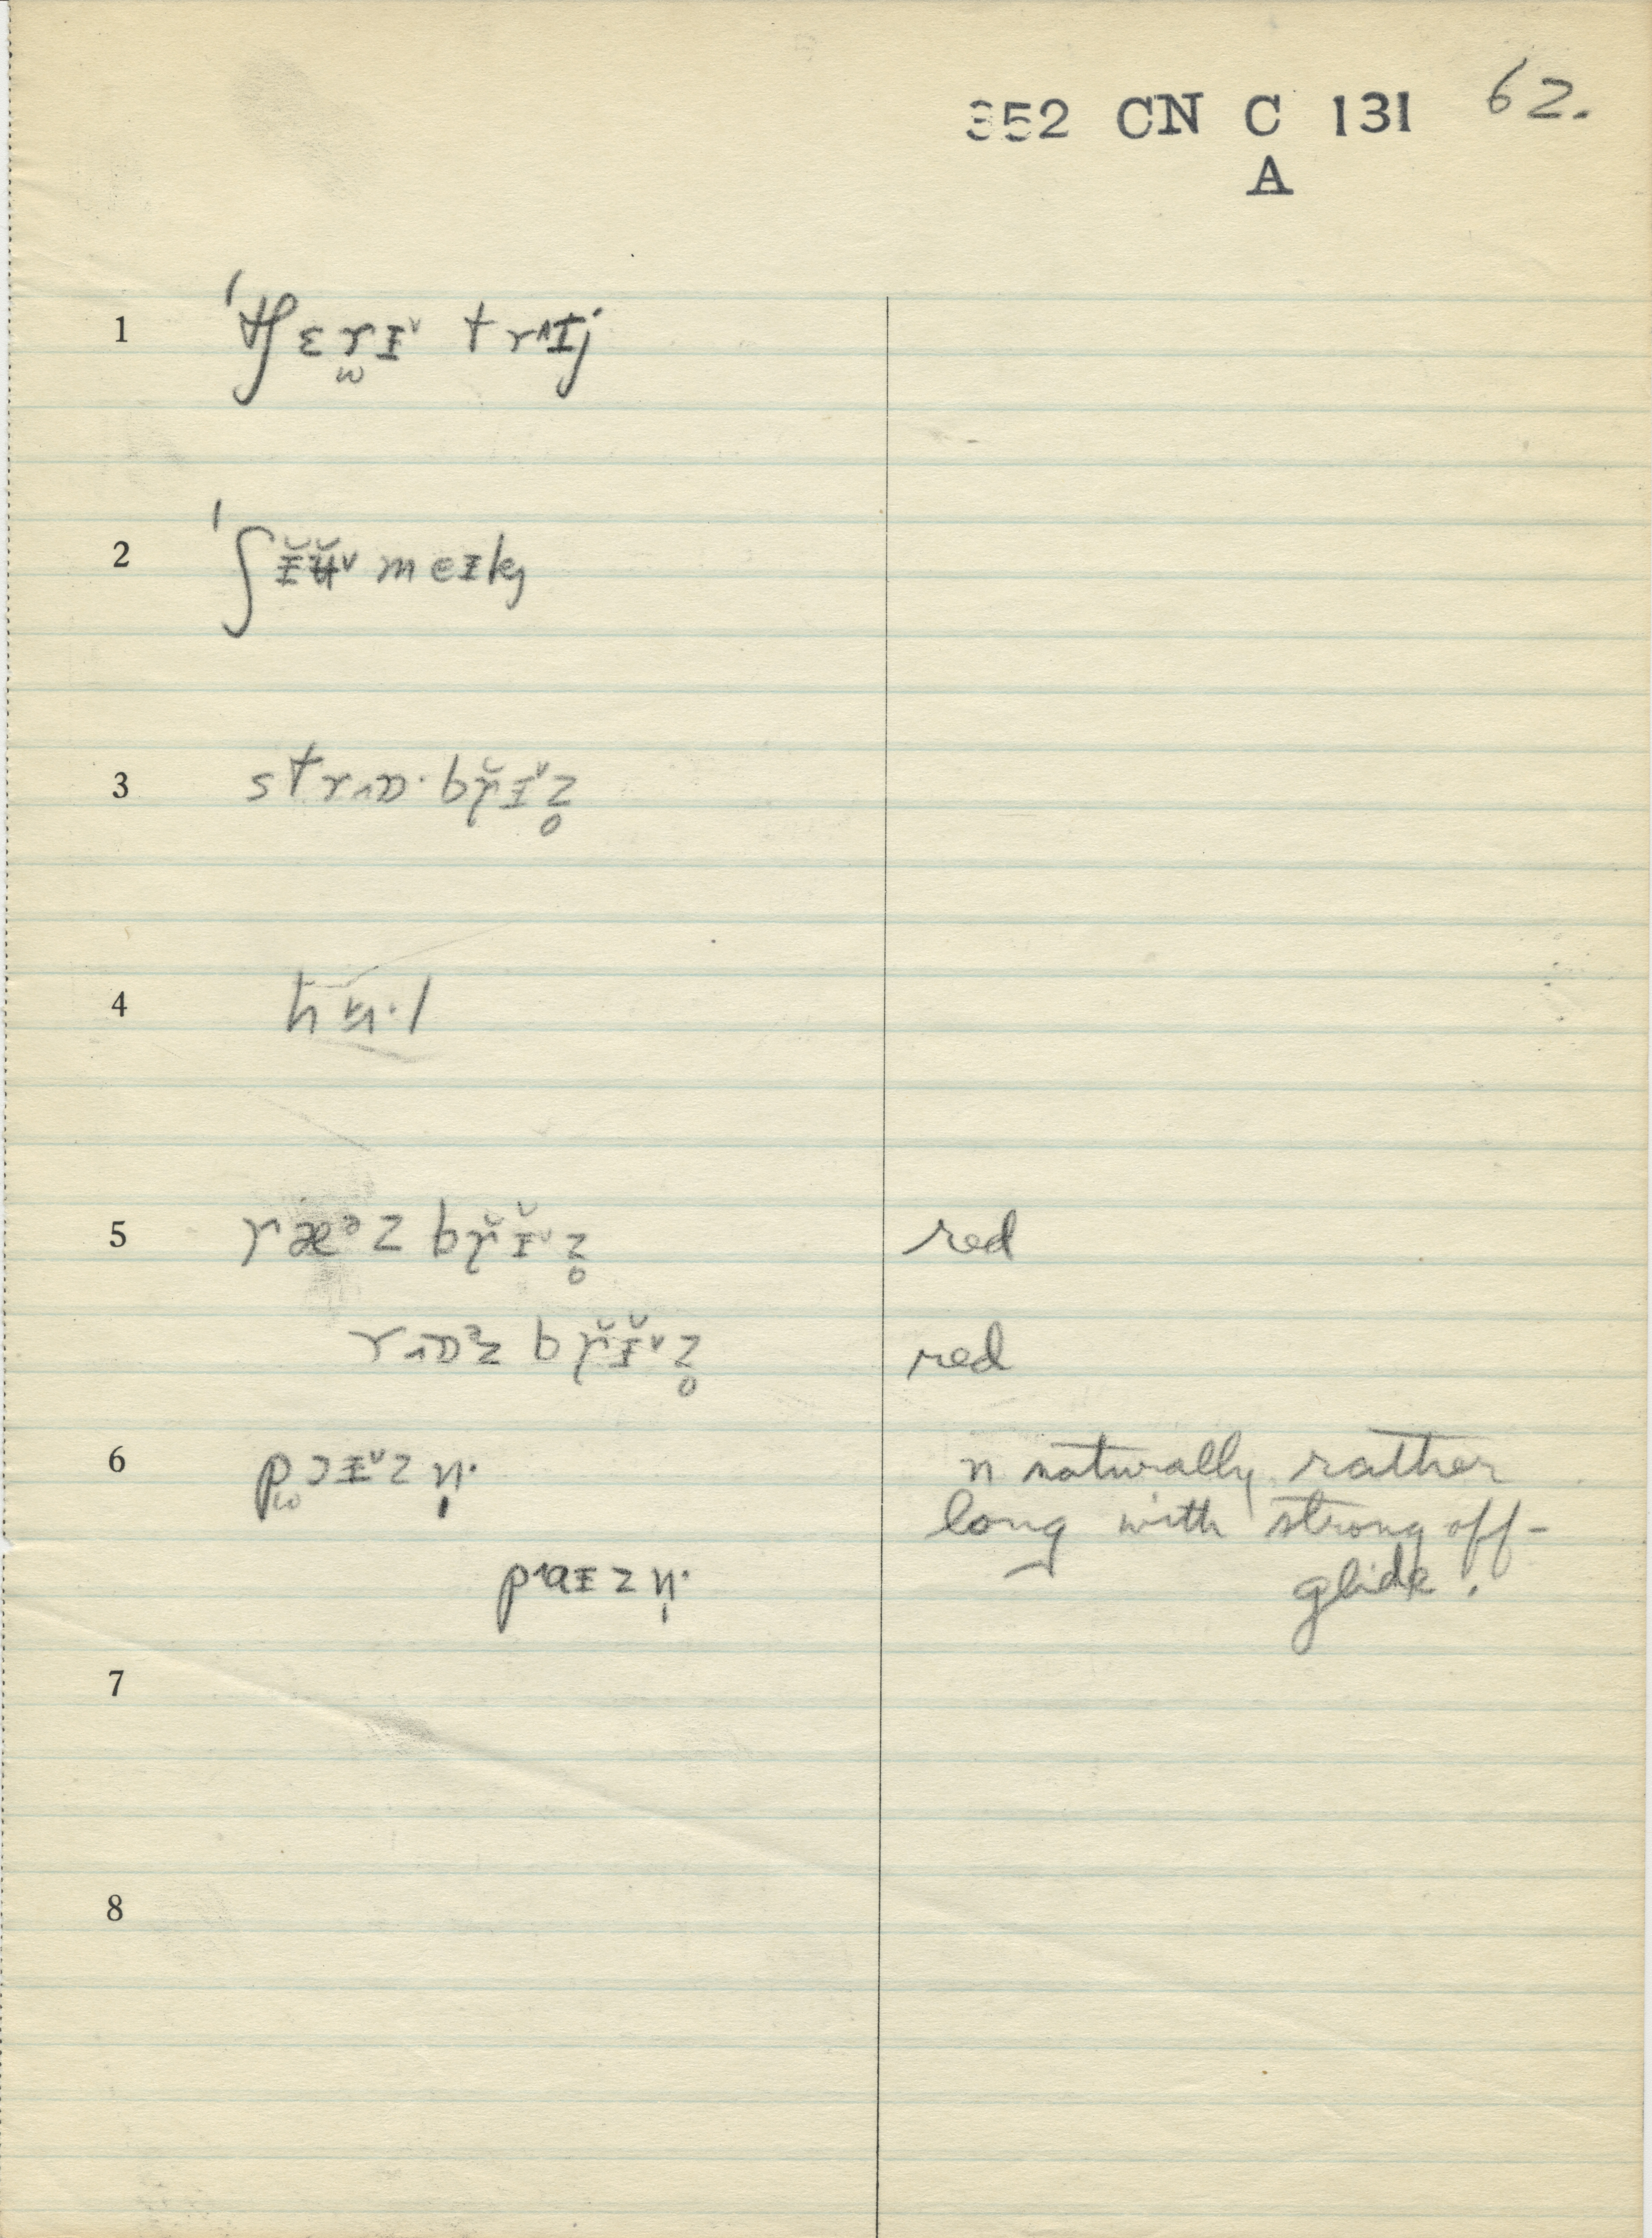 352 CN C 131 62.
A
1 ˈtʃɛr̫ɪ˅ trˈɪj
2 ˈʃɪ̆ʉ̆˅meɪk
3 strɒ·br̆ɪ˅z̥
4 hɨ·l
5 ræᵊz br̆ɪ̆˅z̥ red
rɒᵊz br̆ɪ̆˅z̥ red
6 pɔɪ˅zn̩· n naturally rather
long with strong off-
paɪzn̩· glide.
7
8